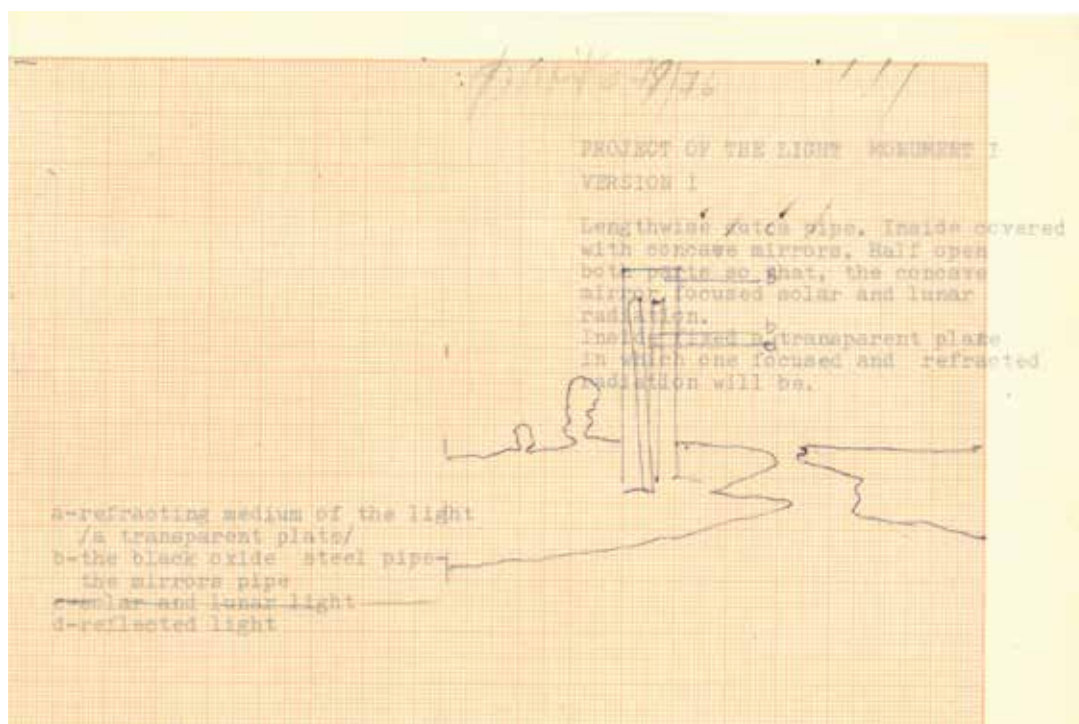 PROJECT OF THE LIGHT MONUMENT I
VERSION I
Lengthwise pipe. Inside covered
with concave mirrors. Half open
both parts so that, the concave
mirror focused solar and lunar
radiation.
Inside fixed a transparent plate
in which one focused and refracted
radiation will be.
b
a-refracting medium of the light
/a transparent plate/
b-the black oxide steel pipe-
the mirrors pipe
c-solar and lunar light
d-reflected light